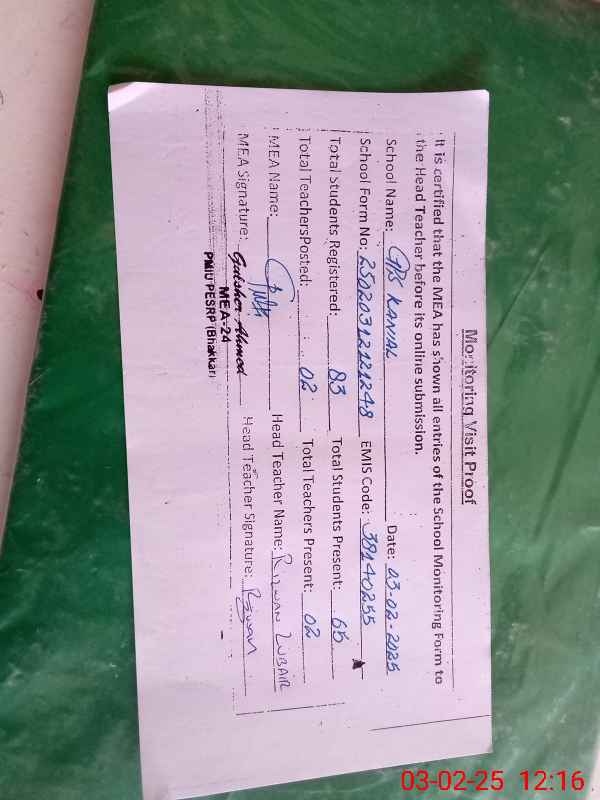 Monitoring Visit Proof
It is certified that the MEA has shown all entries of the School Monitoring Form to
the Head Teacher before its online submission.
School Name: GPS KANIAL Date: 03-02-2025
School Form No: 25020312121248 EMIS Code: 38140255
Total Students Registered: 83 Total Students Present: 65
Total TeachersPosted: 02 Total Teachers Present: 02
MEA Name: Head Teacher Name: RIZWAN ZUBAIR
MEA Signature: Gulsher Ahmed Head Teacher Signature: Rizwan
MEA-24
PMIU PESRP (Bhakkar)
03-02-25 12:16